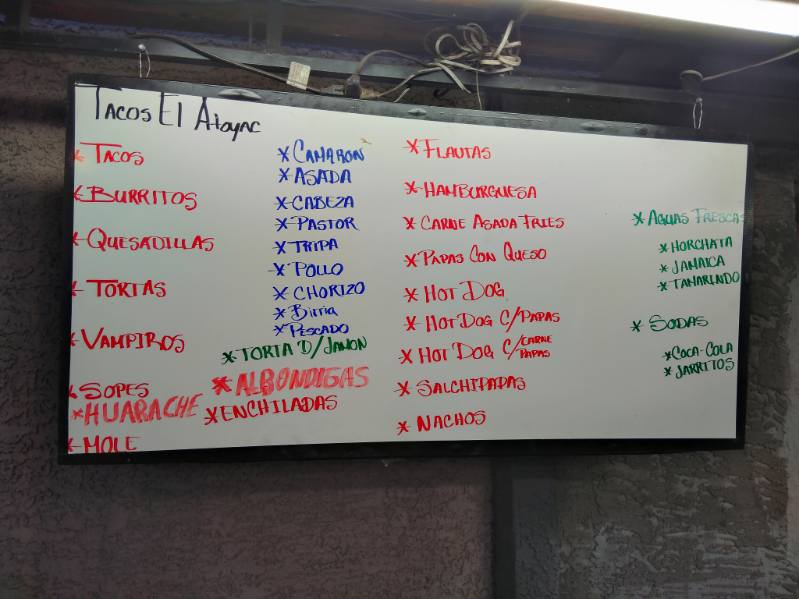 Tacos El Atoyac
* TACOS
* BURRITOS
* QUESADILLAS
* TORTAS
* VAMPIROS
* SOPES
* HUARACHE
* MOLE
* CAMARON
* ASADA
* CABEZA
* PASTOR
* TRIPA
* POLLO
* CHORIZO
* Birria
* PESCADO
* TORTA D/JAMON
* ALBONDIGAS
* ENCHILADAS
* FLAUTAS
* HAMBURGUESA
* CARNE ASADA FRIES
* PAPAS CON QUESO
* HOT DOG
* HOT DOG C/PAPAS
* HOT DOG C/CARNE PAPAS
* SALCHIPAPAS
* NACHOS
* AGUAS FRESCAS
* HORCHATA
* JAMAICA
* TAMARINDO
* SODAS
* COCA-COLA
* JARRITOS